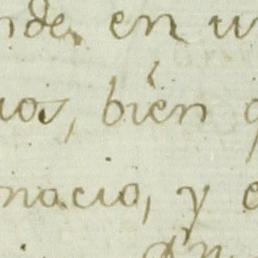 nde. en u
uos, bien q
nacio, y e